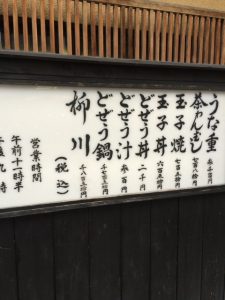 うな重
茶わんむし 七百八拾円
玉子焼 七百五拾円
玉子丼 六百五拾円
どぜう丼 二千円
どぜう汁 参百円
どぜう鍋 千七百五拾円
柳川 千八百五拾円
(税込)
営業時間
午前十一時半